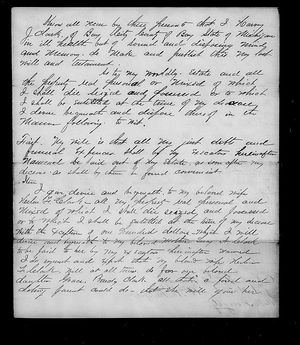 Know all men by these presents that I Henry
J. Clark, of Bay City County of Bay State of Michigan
in ill health but of sound and disposing mind
and memory, do make and publish this my last
will and testament.
As to my worldly estate and all
the property real personal or mixed of which
I shall die seized and possessed or to which
I shall be entitled at the time of my decease
I devise bequeath and dispose thereof in the
manner following to wit:
First, My will is that all my just debts and
funeral expenses shall by my Executor hereinafter
named be paid out of my estate, as soon after my
decease as shall by them be found convenient.
Item,
I give, devise and bequeath to my beloved wife
Clark all my property real personal and
mixed of which I shall die seized and possessed
or to which I shall be entitled at the time of my decease
with the exception of one Hundred dollars which I will
devise and bequeath to my beloved Mother Clark
to be paid to her by my Executors hereinafter named.
I do request and expect that my beloved wife
Clark will at all times do for our beloved
daughter Grace Clark all that a fond and
doting parent could do - that she will give her